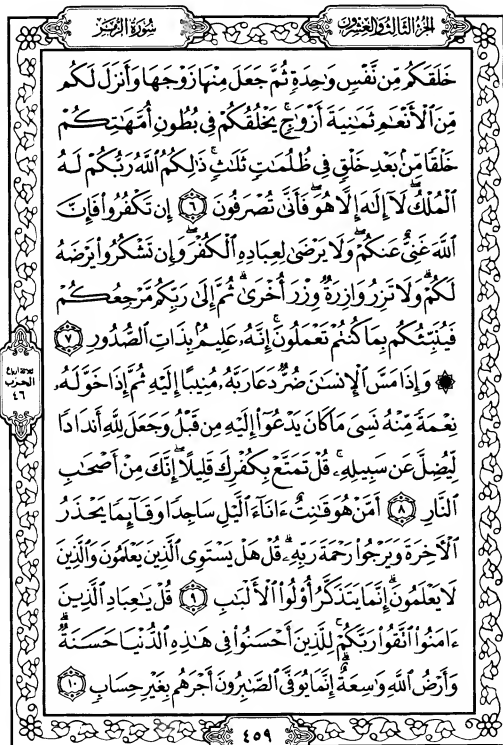 الجزء الثالث والعشرون
سورة الزمر
خَلَقَكُم مِّن نَّفْسٍ وَٰحِدَةٍ ثُمَّ جَعَلَ مِنْهَا زَوْجَهَا وَأَنزَلَ لَكُم
مِّنَ ٱلْأَنْعَٰمِ ثَمَٰنِيَةَ أَزْوَٰجٍ ۚ يَخْلُقُكُمْ فِى بُطُونِ أُمَّهَٰتِكُمْ
خَلْقًا مِّنۢ بَعْدِ خَلْقٍ فِى ظُلُمَٰتٍ ثَلَٰثٍ ۚ ذَٰلِكُمُ ٱللَّهُ رَبُّكُمْ لَهُ
ٱلْمُلْكُ ۖ لَآ إِلَٰهَ إِلَّا هُوَ ۖ فَأَنَّىٰ تُصْرَفُونَ ٦ إِن تَكْفُرُوا۟ فَإِنَّ
ٱللَّهَ غَنِىٌّ عَنكُمْ ۖ وَلَا يَرْضَىٰ لِعِبَادِهِ ٱلْكُفْرَ ۖ وَإِن تَشْكُرُوا۟ يَرْضَهُ
لَكُمْ ۗ وَلَا تَزِرُ وَازِرَةٌ وِزْرَ أُخْرَىٰ ۗ ثُمَّ إِلَىٰ رَبِّكُم مَّرْجِعُكُمْ
فَيُنَبِّئُكُم بِمَا كُنتُمْ تَعْمَلُونَ ۚ إِنَّهُۥ عَلِيمٌۢ بِذَاتِ ٱلصُّدُورِ ٧
ثلاثة أرباع
الحزب
٤٦
۞ وَإِذَا مَسَّ ٱلْإِنسَٰنَ ضُرٌّ دَعَا رَبَّهُۥ مُنِيبًا إِلَيْهِ ثُمَّ إِذَا خَوَّلَهُۥ
نِعْمَةً مِّنْهُ نَسِىَ مَا كَانَ يَدْعُوٓا۟ إِلَيْهِ مِن قَبْلُ وَجَعَلَ لِلَّهِ أَندَادًا
لِّيُضِلَّ عَن سَبِيلِهِۦ ۚ قُلْ تَمَتَّعْ بِكُفْرِكَ قَلِيلًا ۖ إِنَّكَ مِنْ أَصْحَٰبِ
ٱلنَّارِ ٨ أَمَّنْ هُوَ قَٰنِتٌ ءَانَآءَ ٱلَّيْلِ سَاجِدًا وَقَآئِمًا يَحْذَرُ
ٱلْءَاخِرَةَ وَيَرْجُوا۟ رَحْمَةَ رَبِّهِۦ ۗ قُلْ هَلْ يَسْتَوِى ٱلَّذِينَ يَعْلَمُونَ وَٱلَّذِينَ
لَا يَعْلَمُونَ ۗ إِنَّمَا يَتَذَكَّرُ أُو۟لُوا۟ ٱلْأَلْبَٰبِ ٩ قُلْ يَٰعِبَادِ ٱلَّذِينَ
ءَامَنُوا۟ ٱتَّقُوا۟ رَبَّكُمْ ۚ لِلَّذِينَ أَحْسَنُوا۟ فِى هَٰذِهِ ٱلدُّنْيَا حَسَنَةٌ ۗ
وَأَرْضُ ٱللَّهِ وَٰسِعَةٌ ۗ إِنَّمَا يُوَفَّى ٱلصَّٰبِرُونَ أَجْرَهُم بِغَيْرِ حِسَابٍ ١٠
٤٥٩